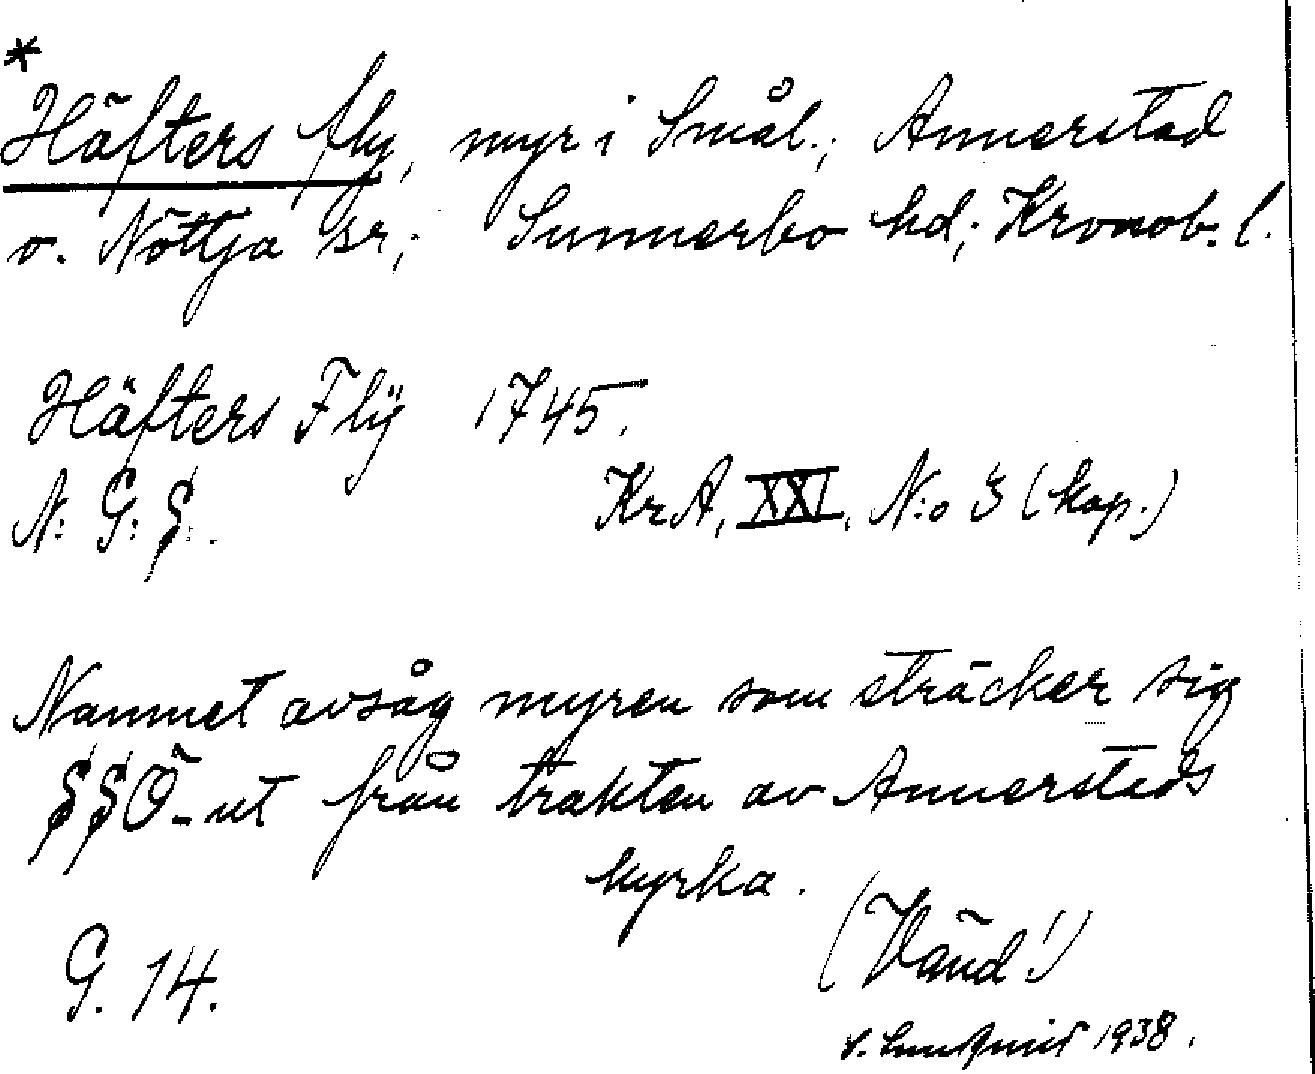 *
Häfters fly, myr i Smål.; Annerstad
o. Nöttja sr; Sunnerbo hd; Kronob. l.
Häfters Flÿ 1745.
N: G: S:.
KrA, XXI, N:o 3 (kop.)
Namnet avsåg myren som sträcker sig
SSÖ-ut från trakten av Annerstads
kyrka.
(Vänd!)
G. 14.
1938.